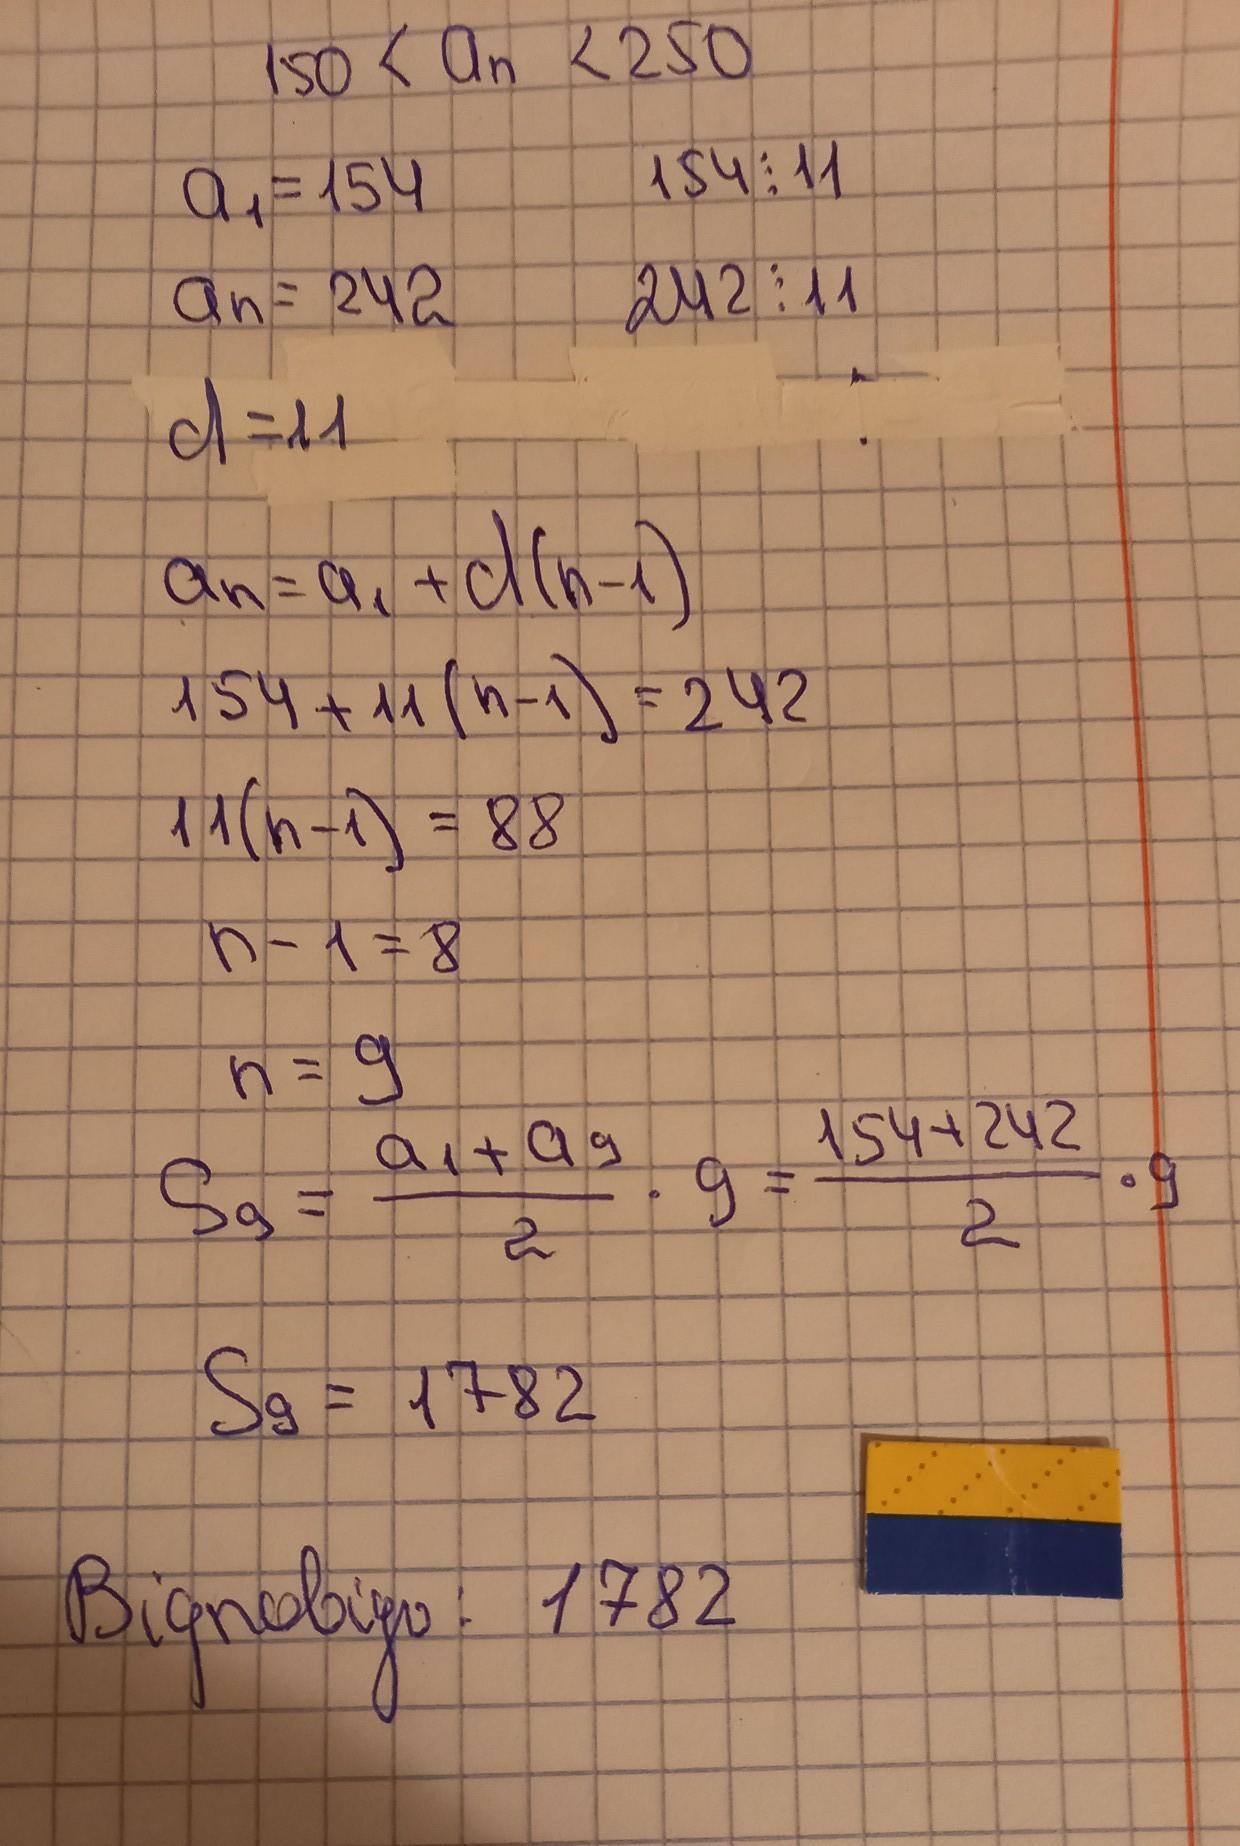 150 < an < 250
a₁ = 154 154⋮11
an = 242 242⋮11
d = 11
an = a₁ + d(n-1)
154 + 11(n-1) = 242
11(n-1) = 88
n - 1 = 8
n = 9
S₉ = (a₁ + a₉)/2 · 9 = (154+242)/2 · 9
S₉ = 1782
Відповідь: 1782